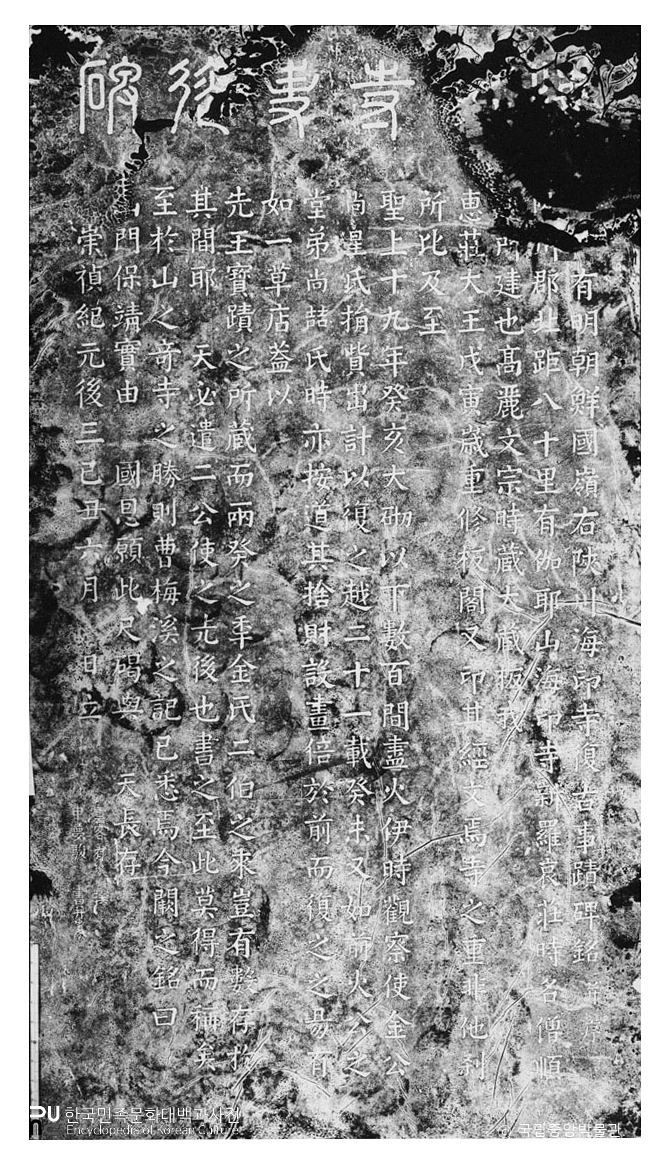 寺事碑
有明朝鮮國嶺右陜川海印寺復古事蹟碑銘并序
郡北距八十里有伽耶山海印寺新羅哀莊時名僧順
所建也高麗文宗時藏大藏板我
惠莊大王戊寅歲重修板閣又印其經文焉寺之重非他刹
所比及至
聖上十九年癸亥大砌以下數百間盡火伊時觀察使金公
尙星氏捐貲出計以復之越二十一載癸未又如前火公之
堂弟尙喆氏時亦按道其捨財設畫倍於前而復之之昜有
如一草店蓋以
先王寶蹟之所藏而兩癸之年金氏二伯之來豈有數存於
其間耶 天必遣二公使之先後也書之至此莫得而稱矣
至於山之奇寺之勝則曹梅溪之記已悉焉今闕之銘曰
山門保靖實由 國恩願此尺碣與 天長存
崇禎紀元後三己丑六月 日立
한국민족문화대백과사전
Encyclopedia of Korean Culture
국립중앙박물관